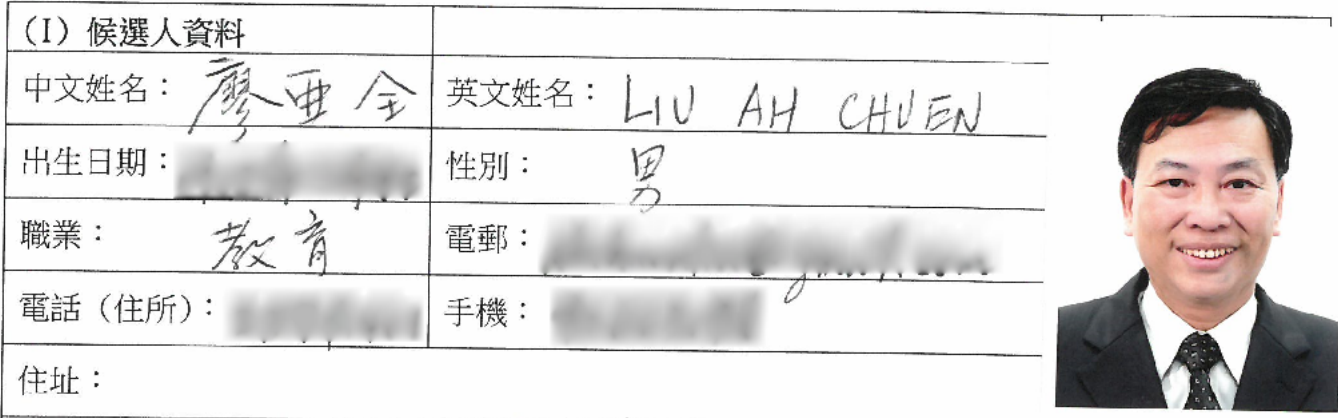 (I) 候選人資料
中文姓名：廖亜全 英文姓名：LIU AH CHUEN
出生日期： 性別：男
職業：教育 電郵：
電話（住所）： 手機：
住址：